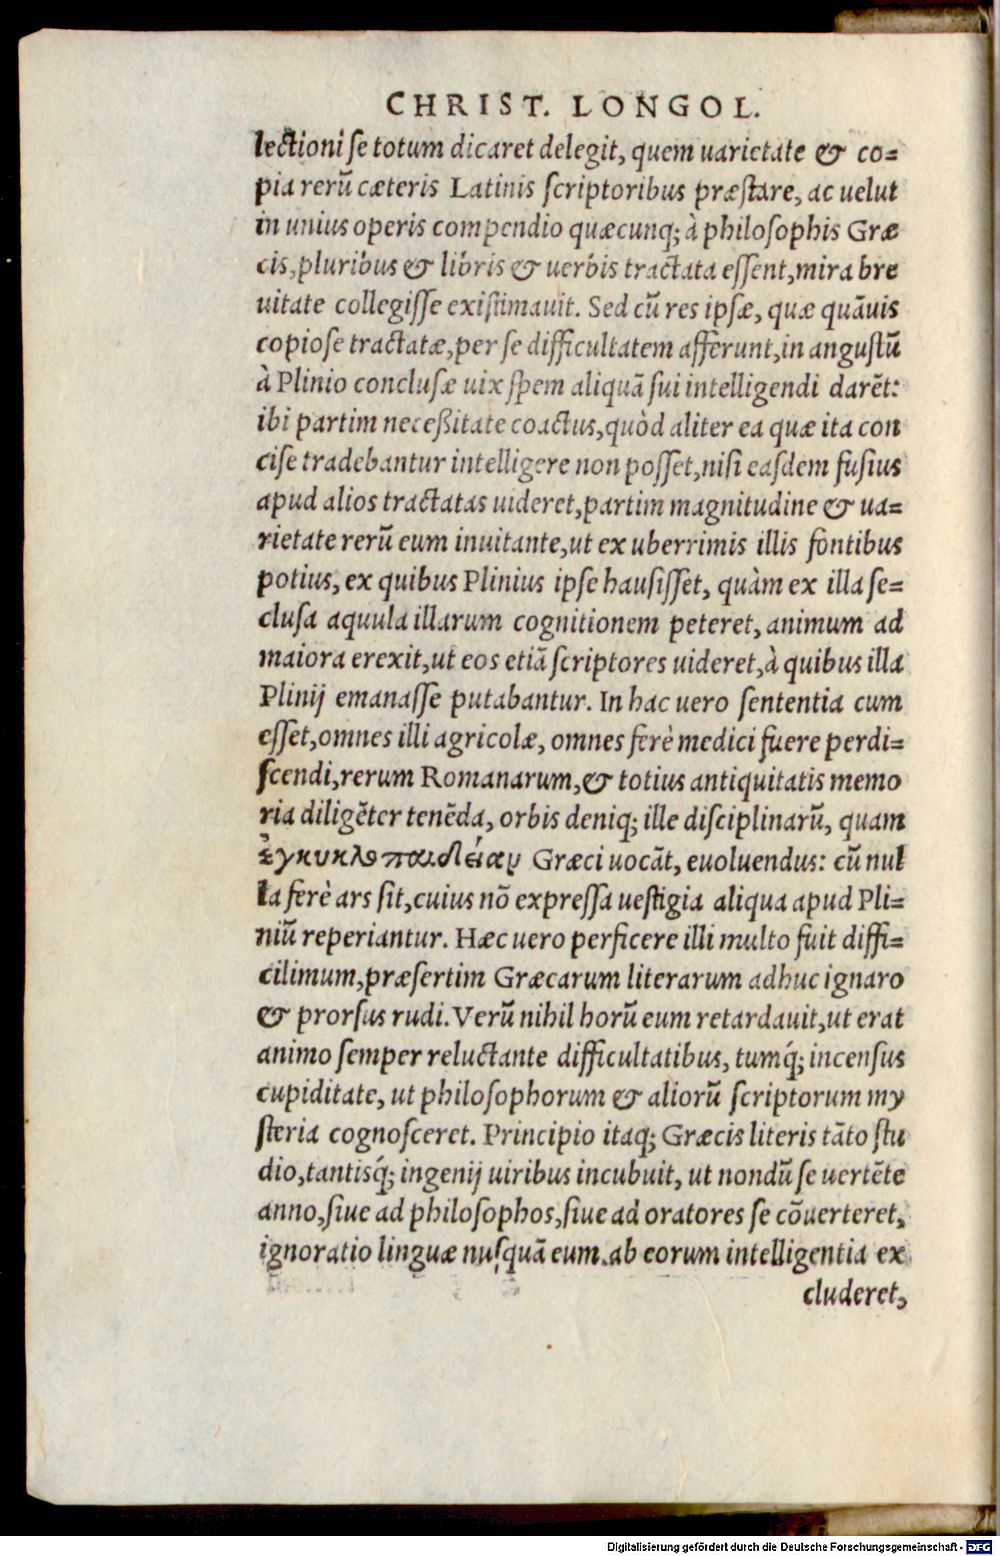 CHRIST. LONGOL.
lectioni se totum dicaret delegit, quem uarietate & co=
pia rerū cæteris Latinis scriptoribus præstare, ac uelut
in unius operis compendio quæcunq; à philosophis Græ
cis, pluribus & libris & uerbis tractata essent, mira bre
uitate collegisse existimauit. Sed cū res ipsæ, quæ quāuis
copiose tractatæ, per se difficultatem afferunt, in angustū
à Plinio conclusæ uix spem aliquā sui intelligendi darēt:
ibi partim neceßitate coactus, quòd aliter ea quæ ita con
cise tradebantur intelligere non posset, nisi easdem fusius
apud alios tractatas uideret, partim magnitudine & ua=
rietate rerū eum inuitante, ut ex uberrimis illis fontibus
potius, ex quibus Plinius ipse hausisset, quàm ex illa se=
clusa aquula illarum cognitionem peteret, animum ad
maiora erexit, ut eos etiā scriptores uideret, à quibus illa
Plinij emanasse putabantur. In hac uero sententia cum
esset, omnes illi agricolæ, omnes ferè medici fuere perdi=
scendi, rerum Romanarum, & totius antiquitatis memo
ria diligēter tenēda, orbis deniq; ille disciplinarū, quam
ἐγκυκλοπαιδείαν Græci uocāt, euoluendus: cū nul
la ferè ars sit, cuius nō expressa uestigia aliqua apud Pli=
niū reperiantur. Hæc uero perficere illi multo fuit diffi=
cilimum, præsertim Græcarum literarum adhuc ignaro
& prorsus rudi. Verū nihil horū eum retardauit, ut erat
animo semper reluctante difficultatibus, tumq́; incensus
cupiditate, ut philosophorum & aliorū scriptorum my
steria cognosceret. Principio itaq; Græcis literis tāto stu
dio, tantisq́; ingenij uiribus incubuit, ut nondū se uertēte
anno, siue ad philosophos, siue ad oratores se cōuerteret,
ignoratio linguæ nusquā eum ab eorum intelligentia ex
cluderet,
Digitalisierung gefördert durch die Deutsche Forschungsgemeinschaft - DFG